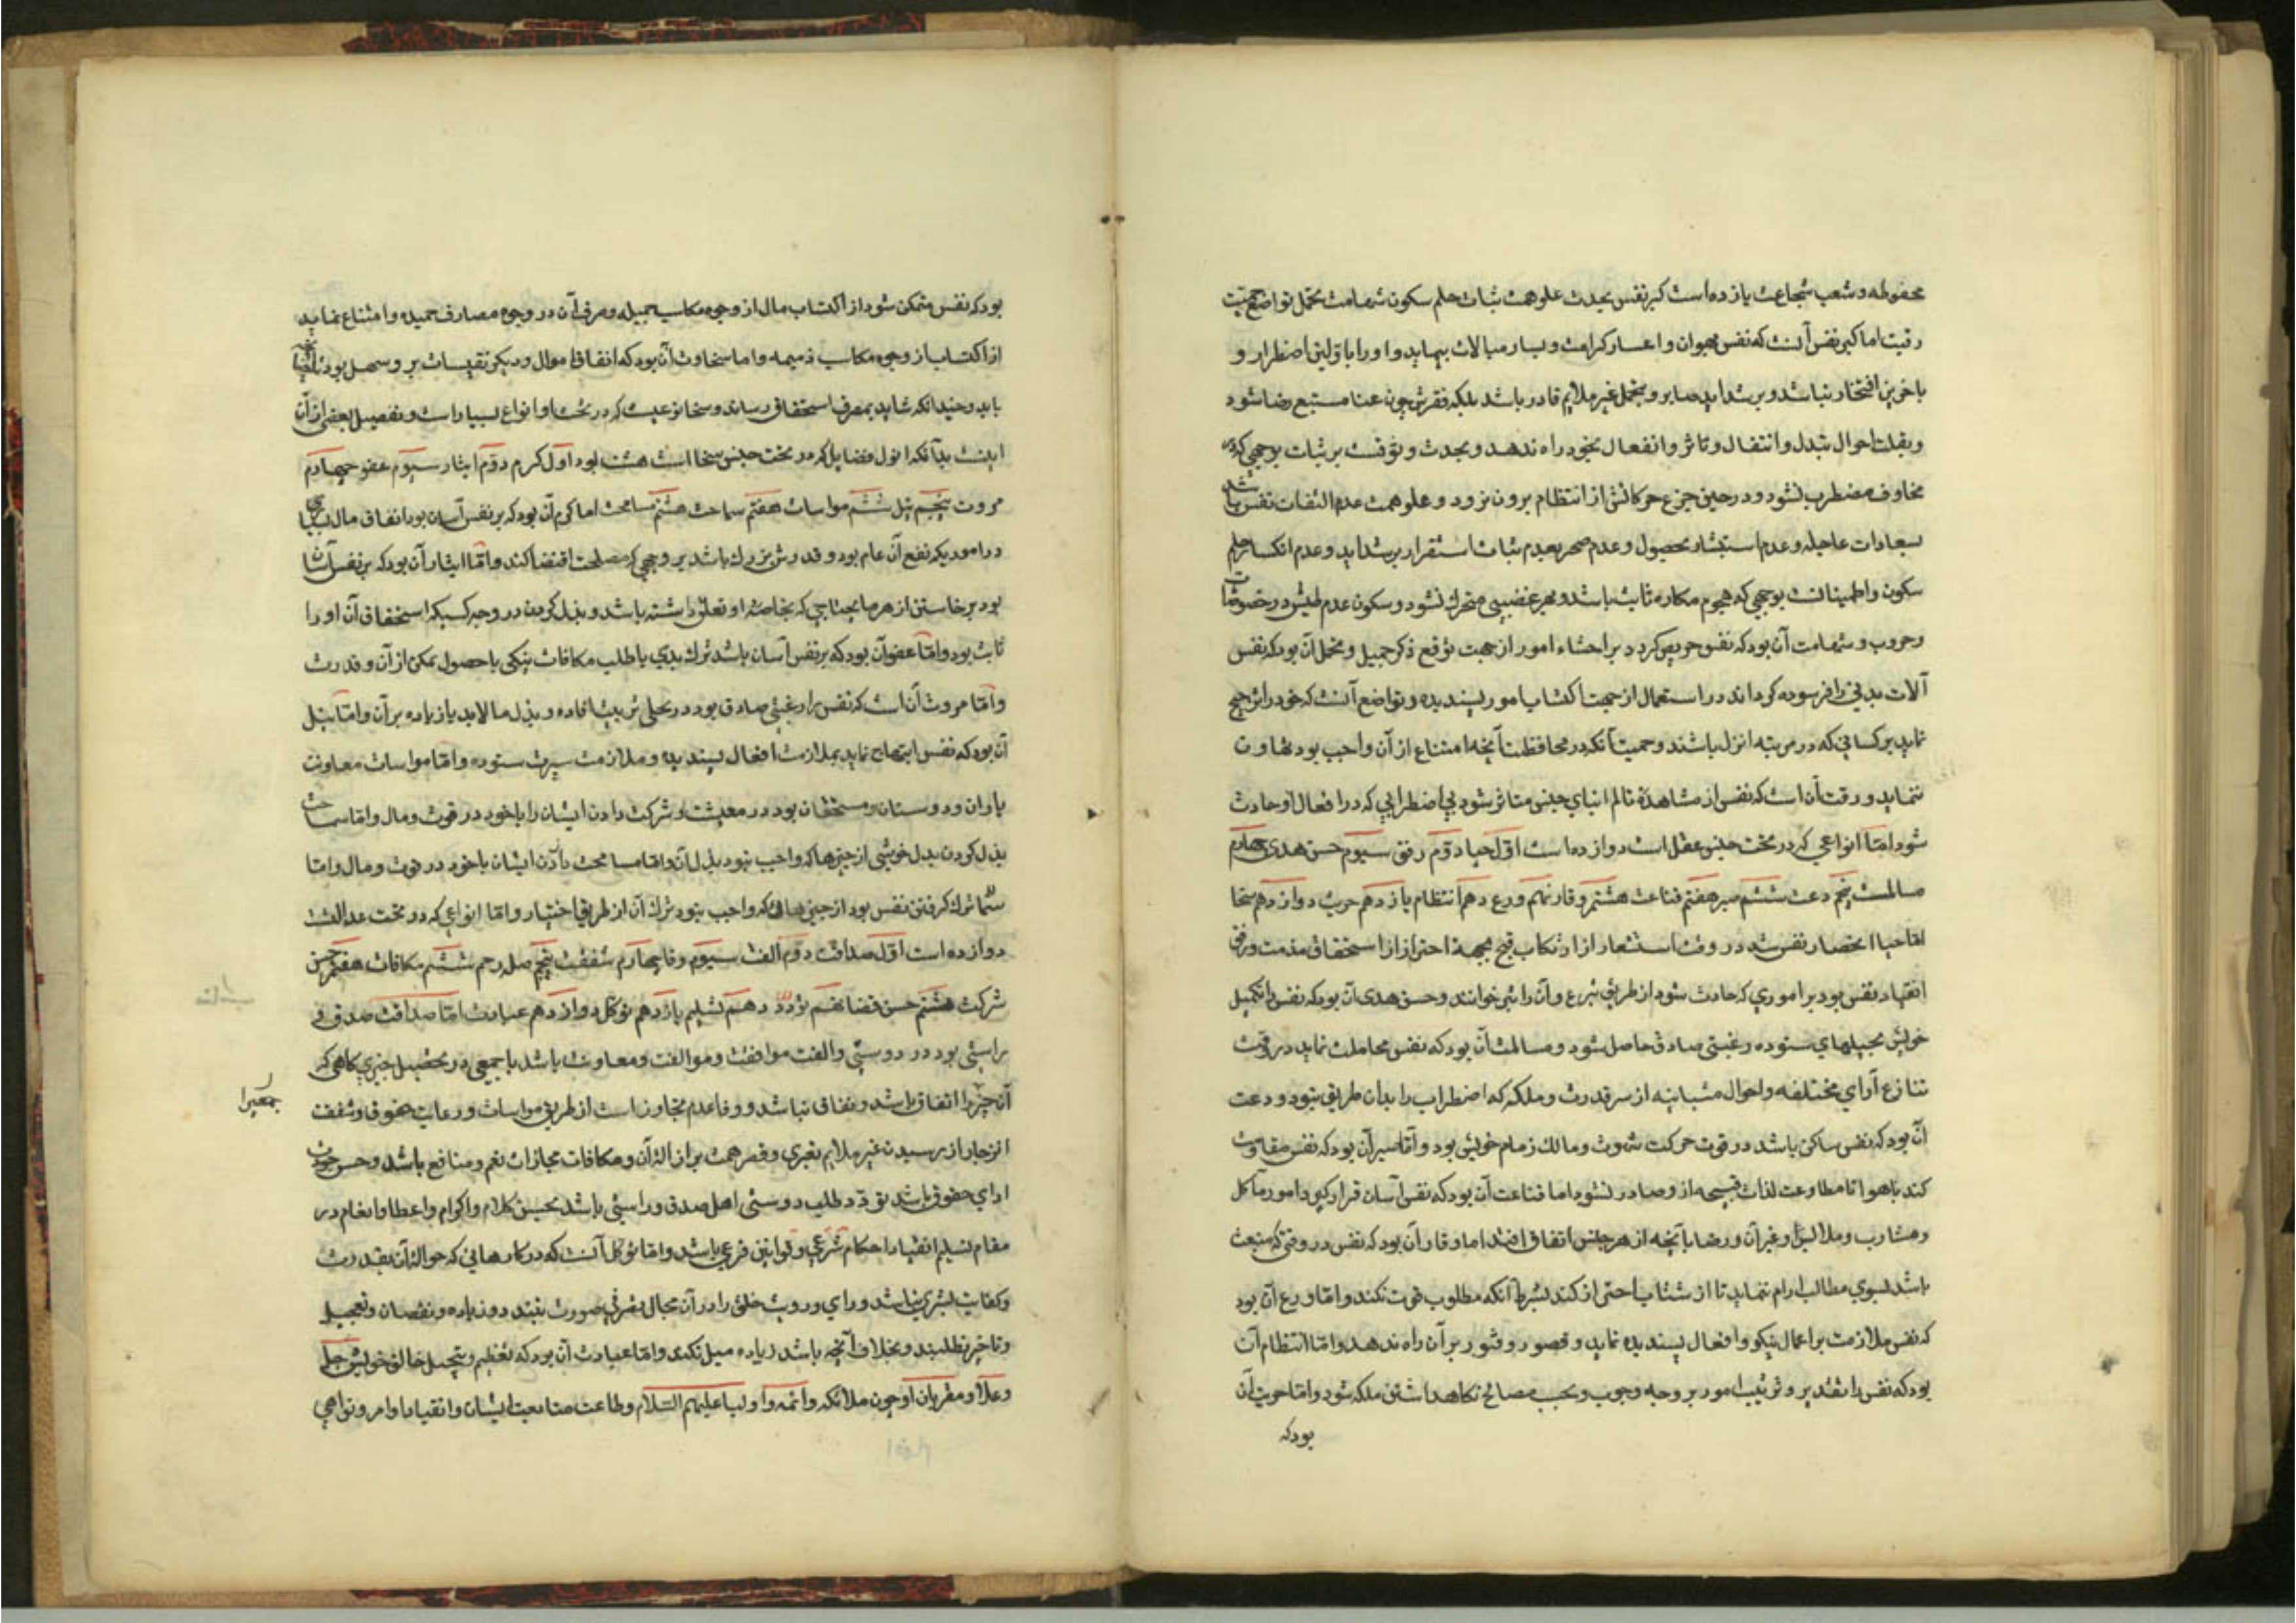 محفوطه و شعب شجاعت یازده است کبر نفس نجدت علو همت ثبات حلم سکون شهامت تحمل تواضع حمیت
رقت اما کبر نفس آنست که نفس بهوان و اعسار کرامت و یسار مبالات ننماید و او را با ولین اضطرار و
باخرین افتخار نباشد و بر شداید صابر و بتحمل غیر ملایم قادر باشد بلکه فقرش چون غنا مستتبع رضا شود
و بقلت احوال تبدل و انتقال و تاثر و انفعال بخود راه ندهد و نجدت وثوقست بر ثبات بوجهی که در
مخاوف مضطرب نشود و در حین جزع حرکاتش از انتظام برون نرود و علو همت عدم التفات نفس باشد
بسعادات عاجله و عدم استبشار بحصول و عدم ضجر بعدم ثبات استقرار بر شداید و عدم انکسار حلم
سکون و اطمینانست بوجهی که هجوم مکاره ثابت باشد و بهر غضبی متحرک نشود و سکون عدم طیش در خصومات
و حروب و شهامت آن بود که نفس حریص گردد بر احشاء امور از جهت توقع ذکر جمیل و تحمل آن بود که نفس
آلات بدنی را فرسوده گرداند در استعمال از جهت اکتساب امور پسندیده و تواضع آنست که خود را ترجیح
نماید بر کسانی که در مرتبه انزل باشند و حمیت آنکه در محافظت آنچه امتناع از آن واجب بود تهاون
ننماید و رقت آن است که نفس از مشاهدهٔ تالم ابنای جنس متاثر شود بی اضطرابی که در افعال او حادث
شود اما انواعی که در تحت جنس عقل است دوازده است اول حیا دوم رفق سیوم حسن هدی چهارم
مسالمت پنجم دعت ششم صبر هفتم قناعت هشتم وقار نهم ورع دهم انتظام یازدهم حریت دوازدهم سخا
اما حیا انحصار نفس شد در وقت استشعار از ارتکاب قبیح بجهة احتراز از استحقاق مذمت و رفق
انقیاد نفس بود بر اموری که حادث شود از طریق تبرع و آن را نیز خوانند و حسن هدی آن بود که نفس را تکمیل
خویش بحیلهای ستوده رغبتی صادق حاصل شود و مسالمت آن بود که نفس مجاملت نماید در وقت
تنازع آرای مختلفه و احوال متباینه از سر قدرت و ملکه که اضطراب را بدان طریق نبود و دعت
آن بود که نفس ساکن باشد در قوت حرکت شهوت و مالک زمام خویش بود و اما صبر آن بود که نفس مقاومت
کند با هوا تا مطاوعت لذات قبیحه از و صادر نشود اما قناعت آن بود که نفس آسان فرا گیرد امور مآکل
و مشارب و ملابس و غیر آن و رضا بآنچه از هر جنس اتفاق افتد اما وقار آن بود که نفس در وقتی که منبعث
باشد بسوی مطالب ارام نماید تا از شتاب احتراز کند بشرط آنکه مطلوب فوت نکند و اما ورع آن بود
که نفس ملازمت بر اعمال نیکو و افعال پسندیده نماید و قصور و فتور بر آن راه ندهد و اما انتظام آن
بود که نفس را تقدیر و ترتیب امور بر وجه وجوب و بحسب مصالح نگاهداشتن ملکه شود و اما حریت آن
بود که
بود که نفس متمکن شود از اکتساب مال از وجوه مکاسب جمیله و صرف آن در وجوه مصارف حمیده و امتناع نماید
از اکتساب از وجوه مکاسب ذمیمه و اما سخاوت آن بود که انفاق اموال و دیگر نفیسات بر و سهل بود
باید و چندانکه شاید بمصرف استحقاق رساند و سخا نوعیست که در تحت او انواع بسیار است و تفصیل بعضی از آن
اینست بدآنکه انول فضایل که در تحت جنس سخا است هشت بود اول کرم دوم ایثار سیوم عفو چهارم
مروت پنجم نیل ششم مواسات هفتم سماحت هشتم مسامحت اما کرم آن بود که بر نفس آسان بود انفاق مال بسیار
در امور یکه نفع آن عام بود و قدرش بزرك باشد بر وجهی که مصلحت اقتضا کند و اما ایثار آن بود که بر نفس آسان
بود بر خاستن از هر ما یحتاجی که بخاصهٔ او تعلق داشته باشد و بذل کردن در وجه کسیکه استحقاق آن او را
ثابت بود و اما عفو آن بود که بر نفس آسان باشد ترك بدی یا طلب مکافات نیکی با حصول تمکن از آن و قدرت
و اما مروت آن است که نفس را رغبتی صادق بود در تحلی بزینت افاده و بذل ما لابد یا زیاده بر آن و اما نیل
آن بود که نفس ابتهاج نماید بملازمت افعال پسندیده و ملازمت سیرت ستوده و اما مواسات معاونت
یاران و دوستان و مستحقان بود در معیشت و شرکت دادن ایشان را با خود در قوت و مال و اما سماحت
بذل کردن بدل خوشی از چیزها که واجب نبود بذل آن و اما مسامحت دادن ایشان با خود در قوت و مال و اما
ترك گرفتن نفس بود از چیزهائی که واجب نبود ترك آن از طریق اختیار و اما انواعی که در تحت عدالت
دوازده است اول صداقت دوم الفت سیوم وفا چهارم شفقت پنجم صله رحم ششم مکافات هفتم حسن
شرکت هشتم حسن قضا نهم تودد دهم تسلیم یازدهم توکل دوازدهم عبادت اما صداقت صدق و
راستی بود در دوستی و الفت موافقت و موالفت و معاونت باشد با جمعی در تحصیل چیزی گاهی که
آن چیز را اتفاق باشد و نفاق نباشد و وفا عدم تجاوز است از طریق مواسات و رعایت حقوق و شفقت
جمعیرا
انزجار از رسیدن غیر ملایم بغیری و قصر همت بر ازالهٔ آن و مکافات مجازات نعم و منافع باشد و حسن
ادای حقوق باشد تودد طلب دوستی اهل صدق و راستی باشد بحسن کلام و اکرام و اعطا و انعام در
مقام تسلیم انقیاد احکام شرعی و قوانین فرعی باشد و اما توکل آنست که در کارهائی که حوالهٔ آن بقدرت
و کفایت بشری نباشد و رای و رویت خلق را در آن مجال تصرفی صورت نبندد و زیاده و نقصان و تعجیل
و تاخیر نطلبند و بخلاف آنچه باشد زیاده میل نکند و اما عبادت آن بود که تعظیم و تبجیل خالق خویش جل
و علا و مقربان او چون ملائکه و ائمه و اولیا علیهم السلام و طاعت متابعت ایشان و انقیاد اوامر و نواهی